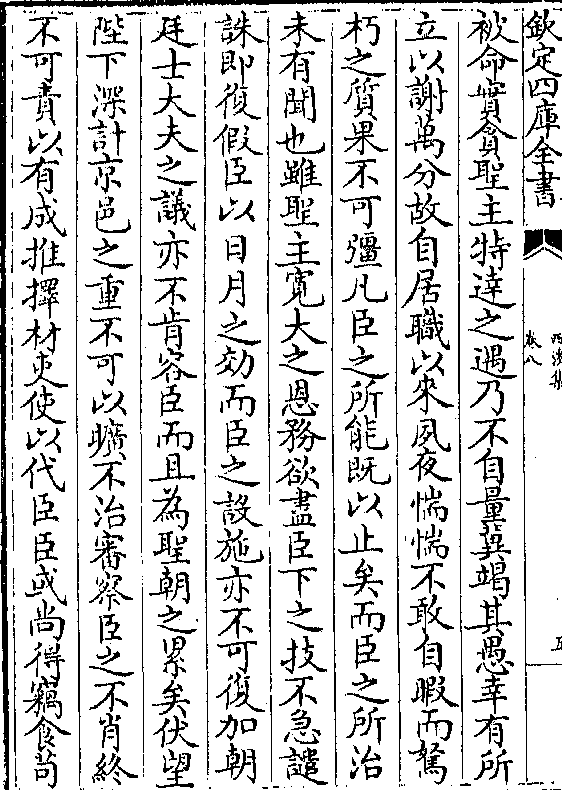 欽定四庫全書
西溪集
卷八
五
被命實貪聖主特達之遇乃不自量冀竭其愚幸有所
立以謝萬分故自居職以來夙夜惴惴不敢自暇而駑
朽之質果不可彊凡臣之所能既以止矣而臣之所治
未有聞也雖聖主寛大之恩務欲盡臣下之技不急譴
誅即復假臣以日月之効而臣之設施亦不可復加朝
廷士大夫之議亦不肯容臣而且為聖朝之累矣伏望
陛下深計京邑之重不可以曠不治審察臣之不肖終
不可責以有成推擇材吏使以代臣臣或尚得竊食苟